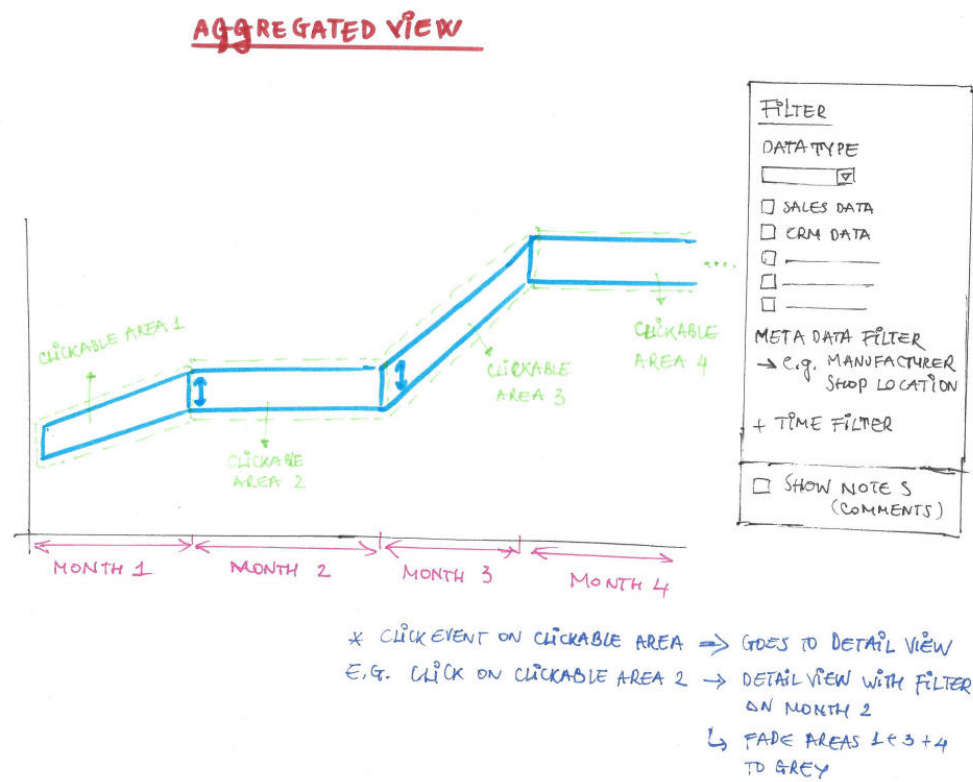 AGGREGATED VIEW
FILTER
DATA TYPE
SALES DATA
CRM DATA
META DATA FILTER
→ e.g. MANUFACTURER
SHOP LOCATION
+ TIME FILTER
SHOW NOTES
(COMMENTS)
CLICKABLE AREA 1
CLICKABLE
AREA 2
CLICKABLE
AREA 3
CLICKABLE
AREA 4
....
MONTH 1
MONTH 2
MONTH 3
MONTH 4
* CLICK EVENT ON CLICKABLE AREA => GOES TO DETAIL VIEW
E.G. CLICK ON CLICKABLE AREA 2 → DETAIL VIEW WITH FILTER
ON MONTH 2
↳ FADE AREAS 1+3+4
TO GREY